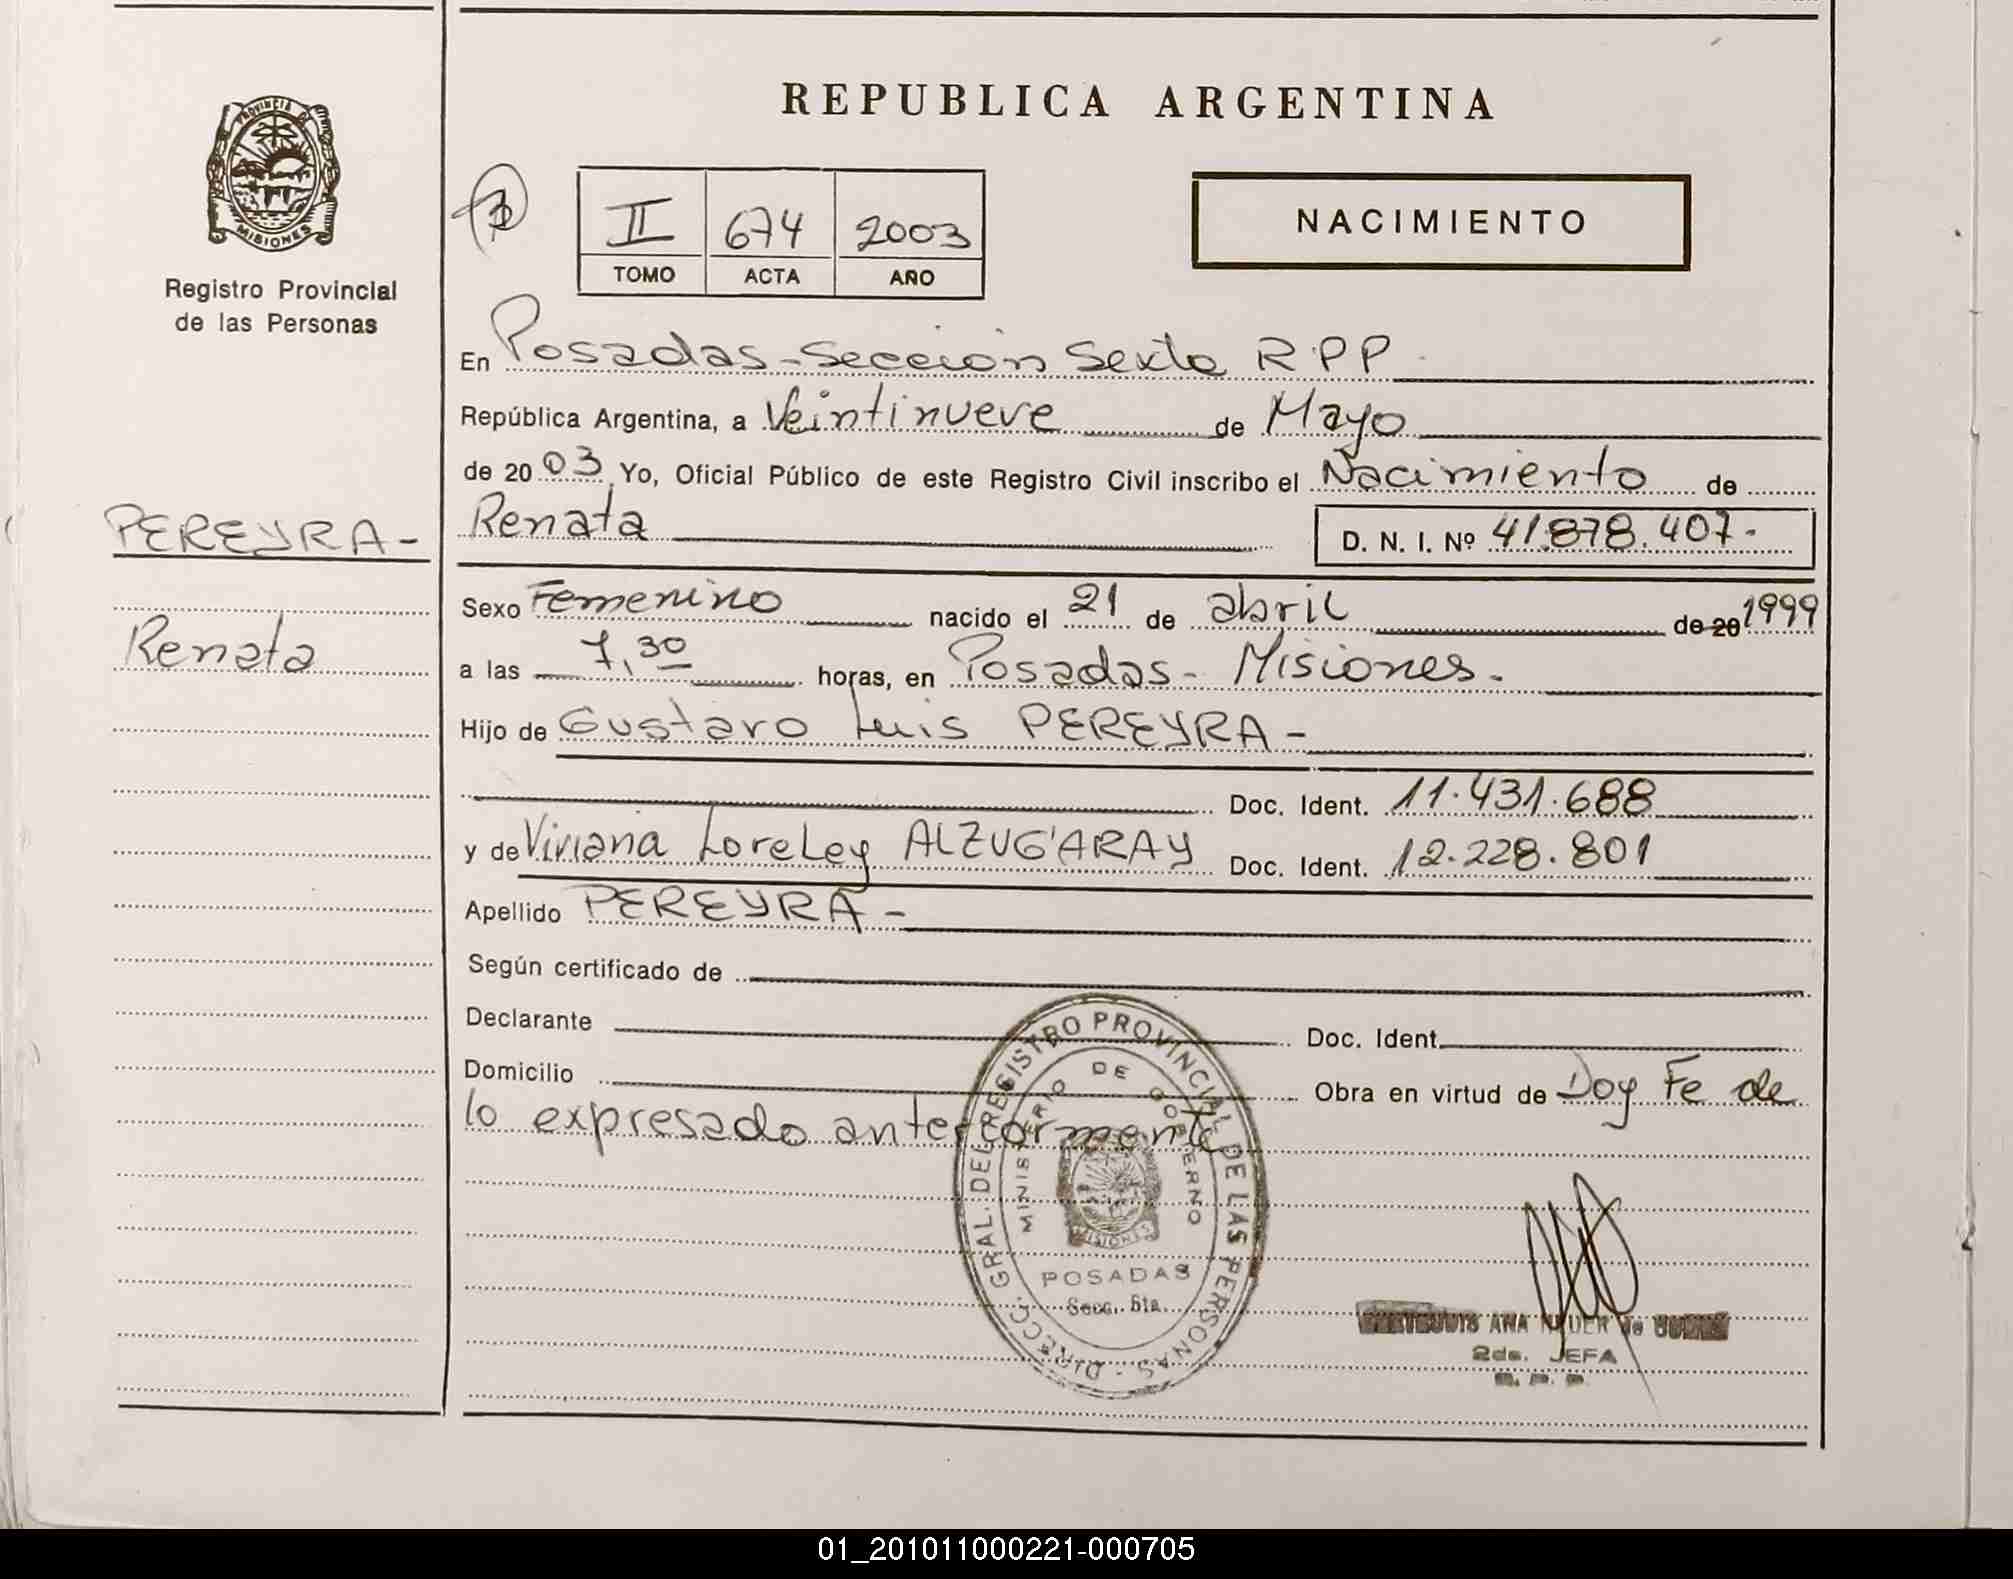 REPUBLICA ARGENTINA
PROVINCIA DE
MISIONES
Registro Provincial
de las Personas
II 674 2003
TOMO ACTA AÑO
NACIMIENTO
En Posadas-Sección Sexta R.P.P.
República Argentina, a Veintinueve de Mayo
de 20 03 Yo, Oficial Público de este Registro Civil inscribo el Nacimiento de
PEREYRA-
Renata D. N. I. Nº 41.878.407.-
Sexo Femenino nacido el 21 de abril de 20 1999
Renata
a las 7,30 horas, en Posadas- Misiones.
Hijo de Gustavo Luis PEREYRA-
Doc. Ident. 11.431.688
y de Viviana Loreley ALZUGARAY Doc. Ident. 12.228.801
Apellido PEREYRA-
Según certificado de
Declarante Doc. Ident.
Domicilio Obra en virtud de Doy Fe de
lo expresado anteriormente
DIRECC. GRAL. DEL REGISTRO PROVINCIAL DE LAS PERSONAS
MINISTERIO DE GOBIERNO
MISIONES
POSADAS
Secc. 6ta.
ANA de
2da. JEFA
R. P. P.
01_201011000221-000705